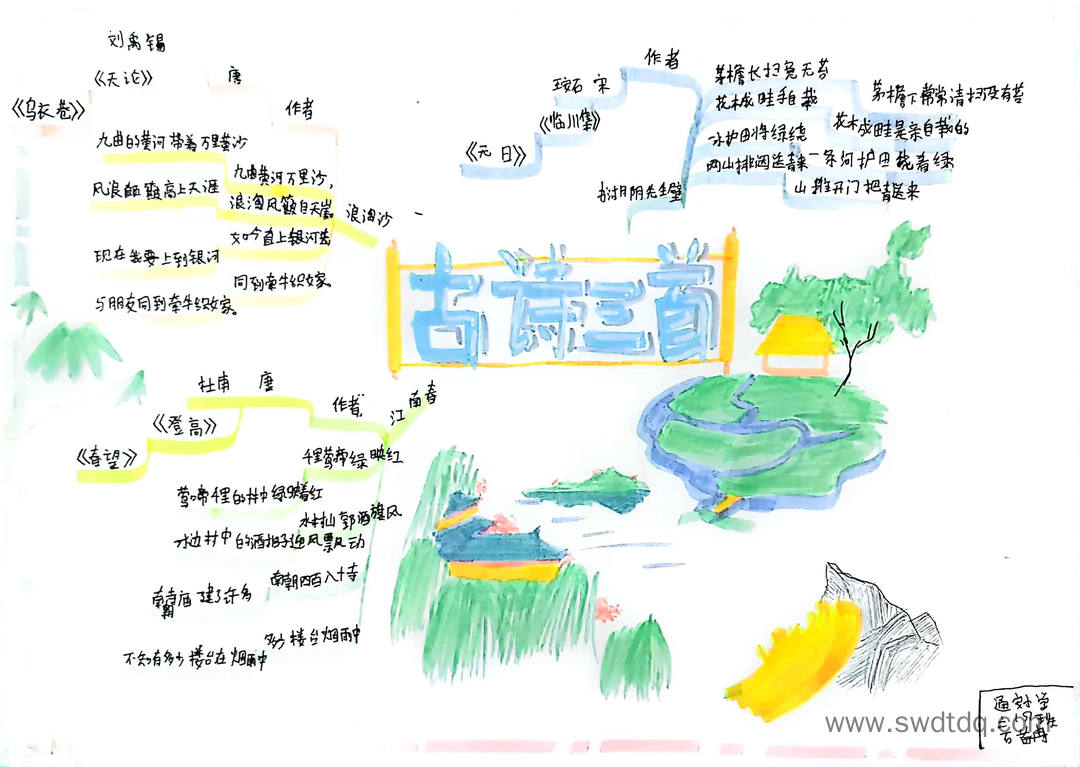 刘禹锡
《天论》
唐
《乌衣巷》
作者
九曲的黄河带着万里黄沙
九曲黄河万里沙,
风浪颠簸高上天涯
浪淘风簸自天崖。
浪淘沙
如今直上银河去
现在我要上到银河
同到牵牛织女家。
与朋友同到牵牛织女家。
作者
王安石 宋
《临川集》
《元日》
茅檐长扫免无苔
茅檐下常常清扫没有苔
花木成畦手自栽
花木成畦是亲自栽的
水护田将绿绕
一条河护田绕着绿
两山排闼送青来
山推开门把青送来
书湖阴先生壁
古诗三首
杜甫 唐
作者
江南春
《登高》
《春望》
千里莺啼绿映红
莺啼千里的村中绿映着红
水村山郭酒旗风
水边村中的酒旗子迎风飘动
南朝四百八十寺
南朝寺庙建了许多
多少楼台烟雨中
不知有多少楼台在烟雨中
www.swdtdq.com